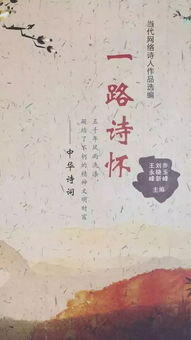 当代网络诗人作品选编
一路诗怀
玉峰
刘晓新
王永峰
主编
五千年风雨洗涤
凝结了不朽的精神文明财富
——中华诗词